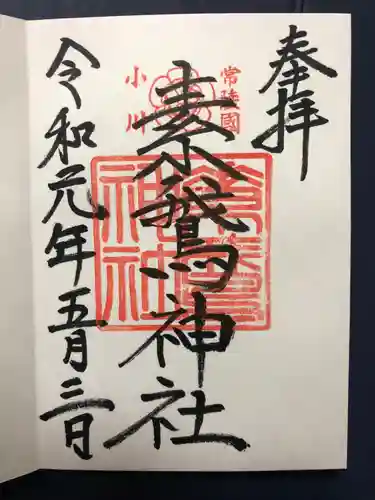 奉拝
常陸國
小川
素鵞神社
令和元年五月三日